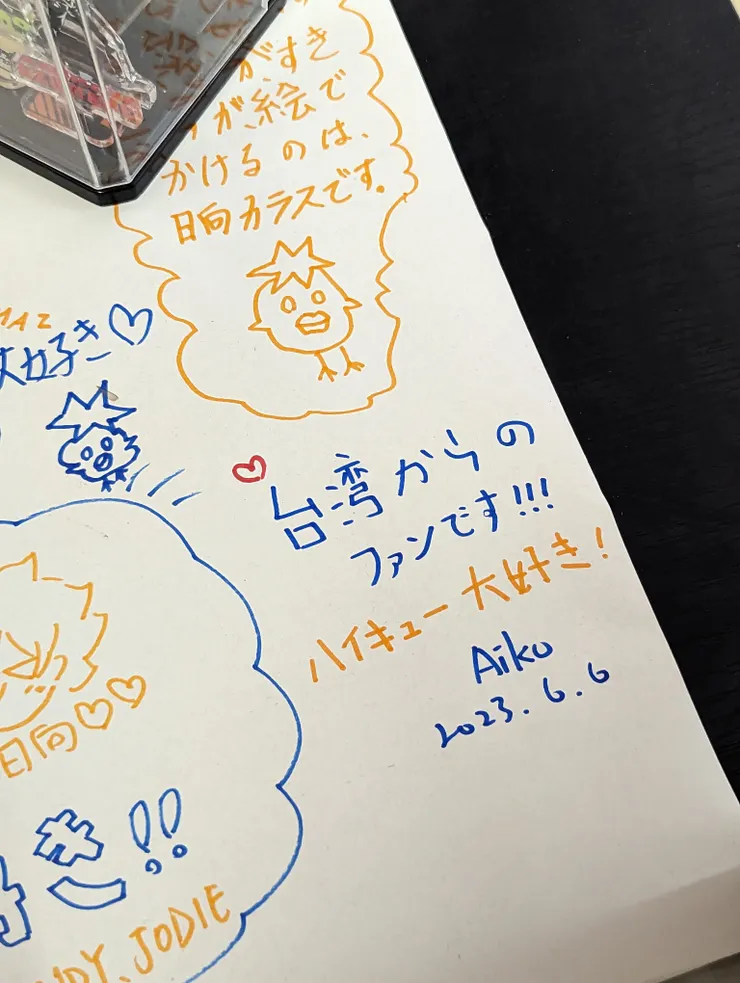 がすき
が、絵で
かけるのは、
日向カラスです。
大好き♡
♡台湾からの
ファンです!!!
ハイキュー大好き!
Aiko
2023.6.6
日向♡♡
き!!
JODIE